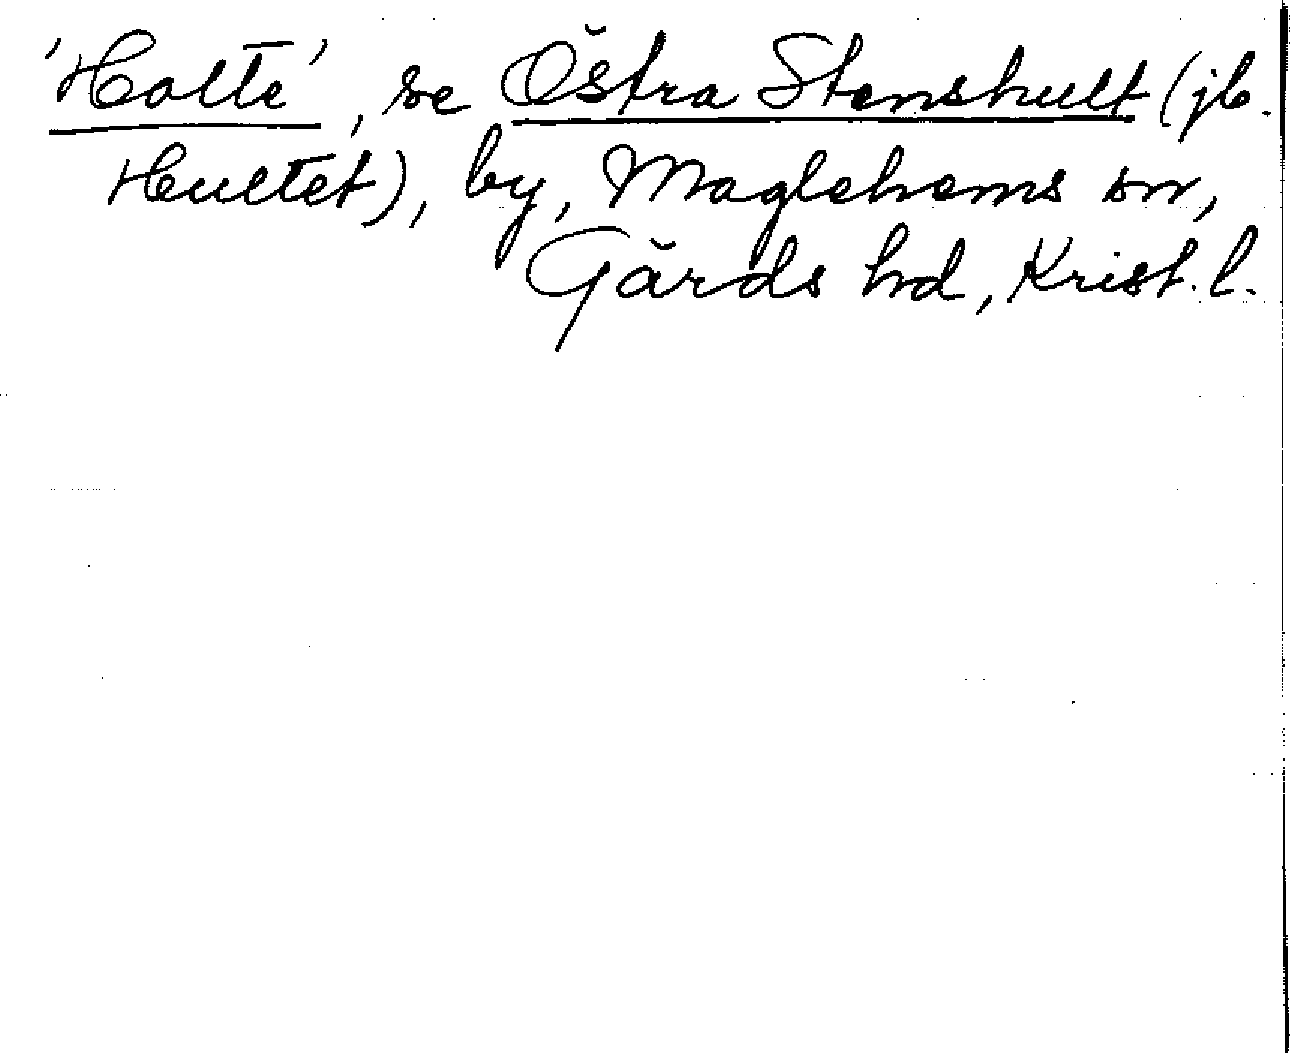 'Holte', se Östra Stenshult (jb.
Hultet), by, Maglehems sn,
Gärds hd, Krist. l.